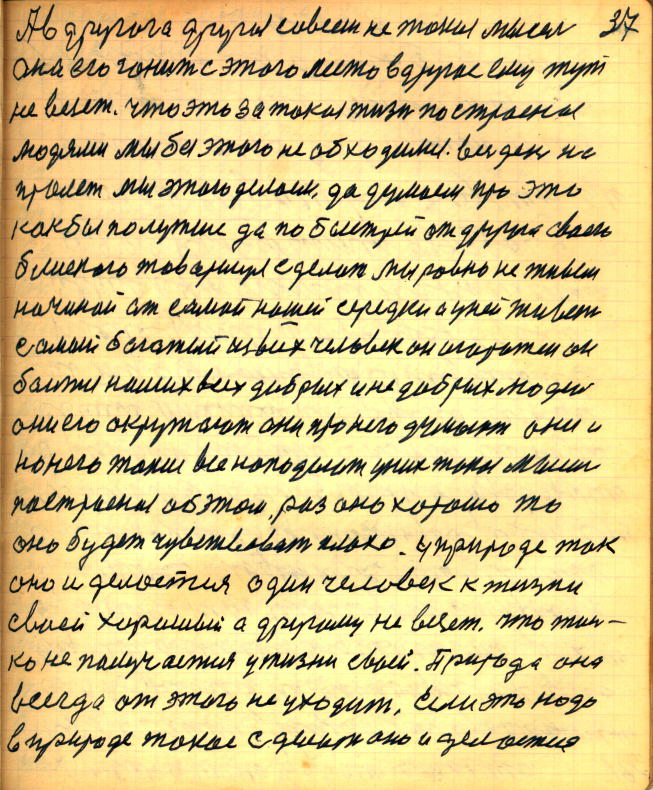 А в другога другая совсем не такая мысел 37
Она его гонит с этого место в другое ему тут
не везет. что это за такая жизн построеная
людями мы бы этого не обходили. вец ден не
пролет мы этого делаем. да думаем про это
как бы получше да по быстрей от друга своего
близкого товарища сделат мы ровно не живем
начиная от самой нашей середки а у ней живет
самый богатый из всех человек он огорожен он
боится наших всех добрых и не добрых людей
они его окружают они про него думают они и
на него такие все нападают у них такая мысел
построена об этом, раз оно хорошо то
оно будет чувствоват плохо. у природе так
оно и делается один человек к жизни
своей хороший а другому не везет. что толь-
ко не получается у жизни своей. Природа она
всегда от этого не уходит, Если это надо
в природе такое сделат оно и делается